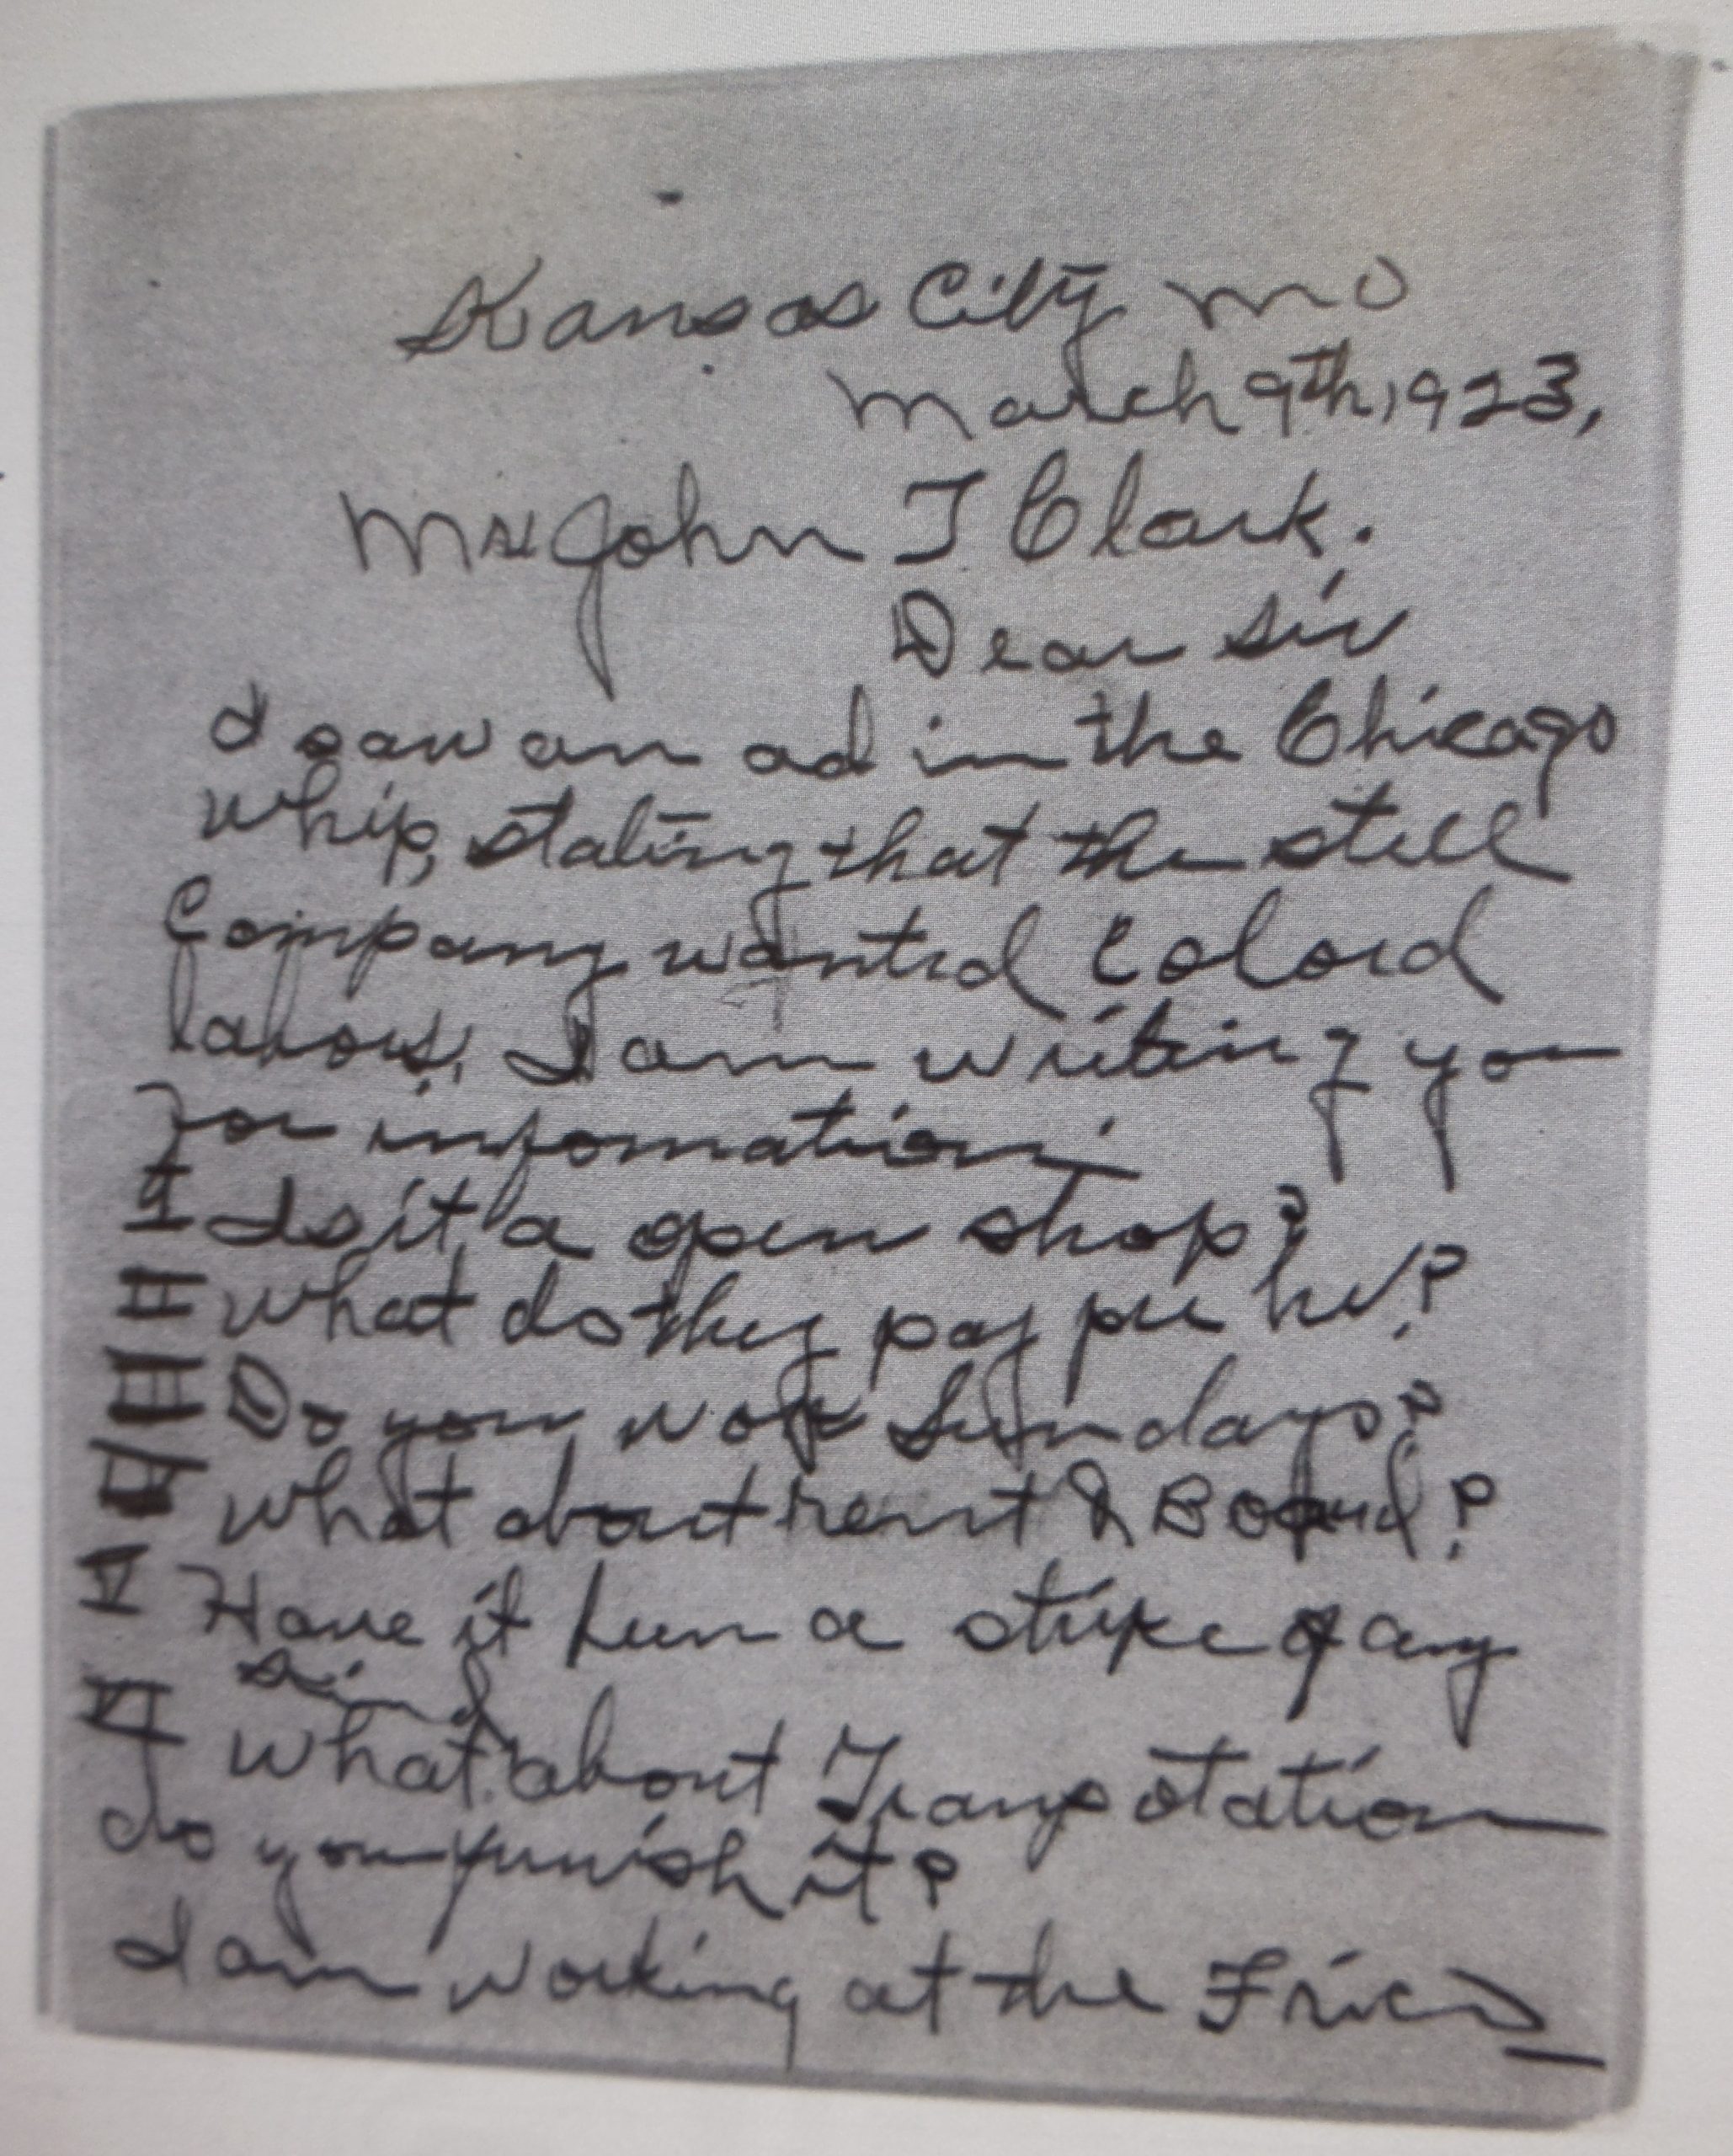 Kansas City Mo
March 9th, 1923,
Mr John T Clark.
Dear Sir
I saw an ad in the Chicago
Whip, stating that the steel
Company wanted Colord
labors, I am writing you
for infomation.
I Is it a open shop?
II What do they pay per hr?
III Do you work Sundays?
IV What about rent & Board?
V Have it been a strike of any
kind
VI What about Transpotation
do you funish it?
I am working at the Frico